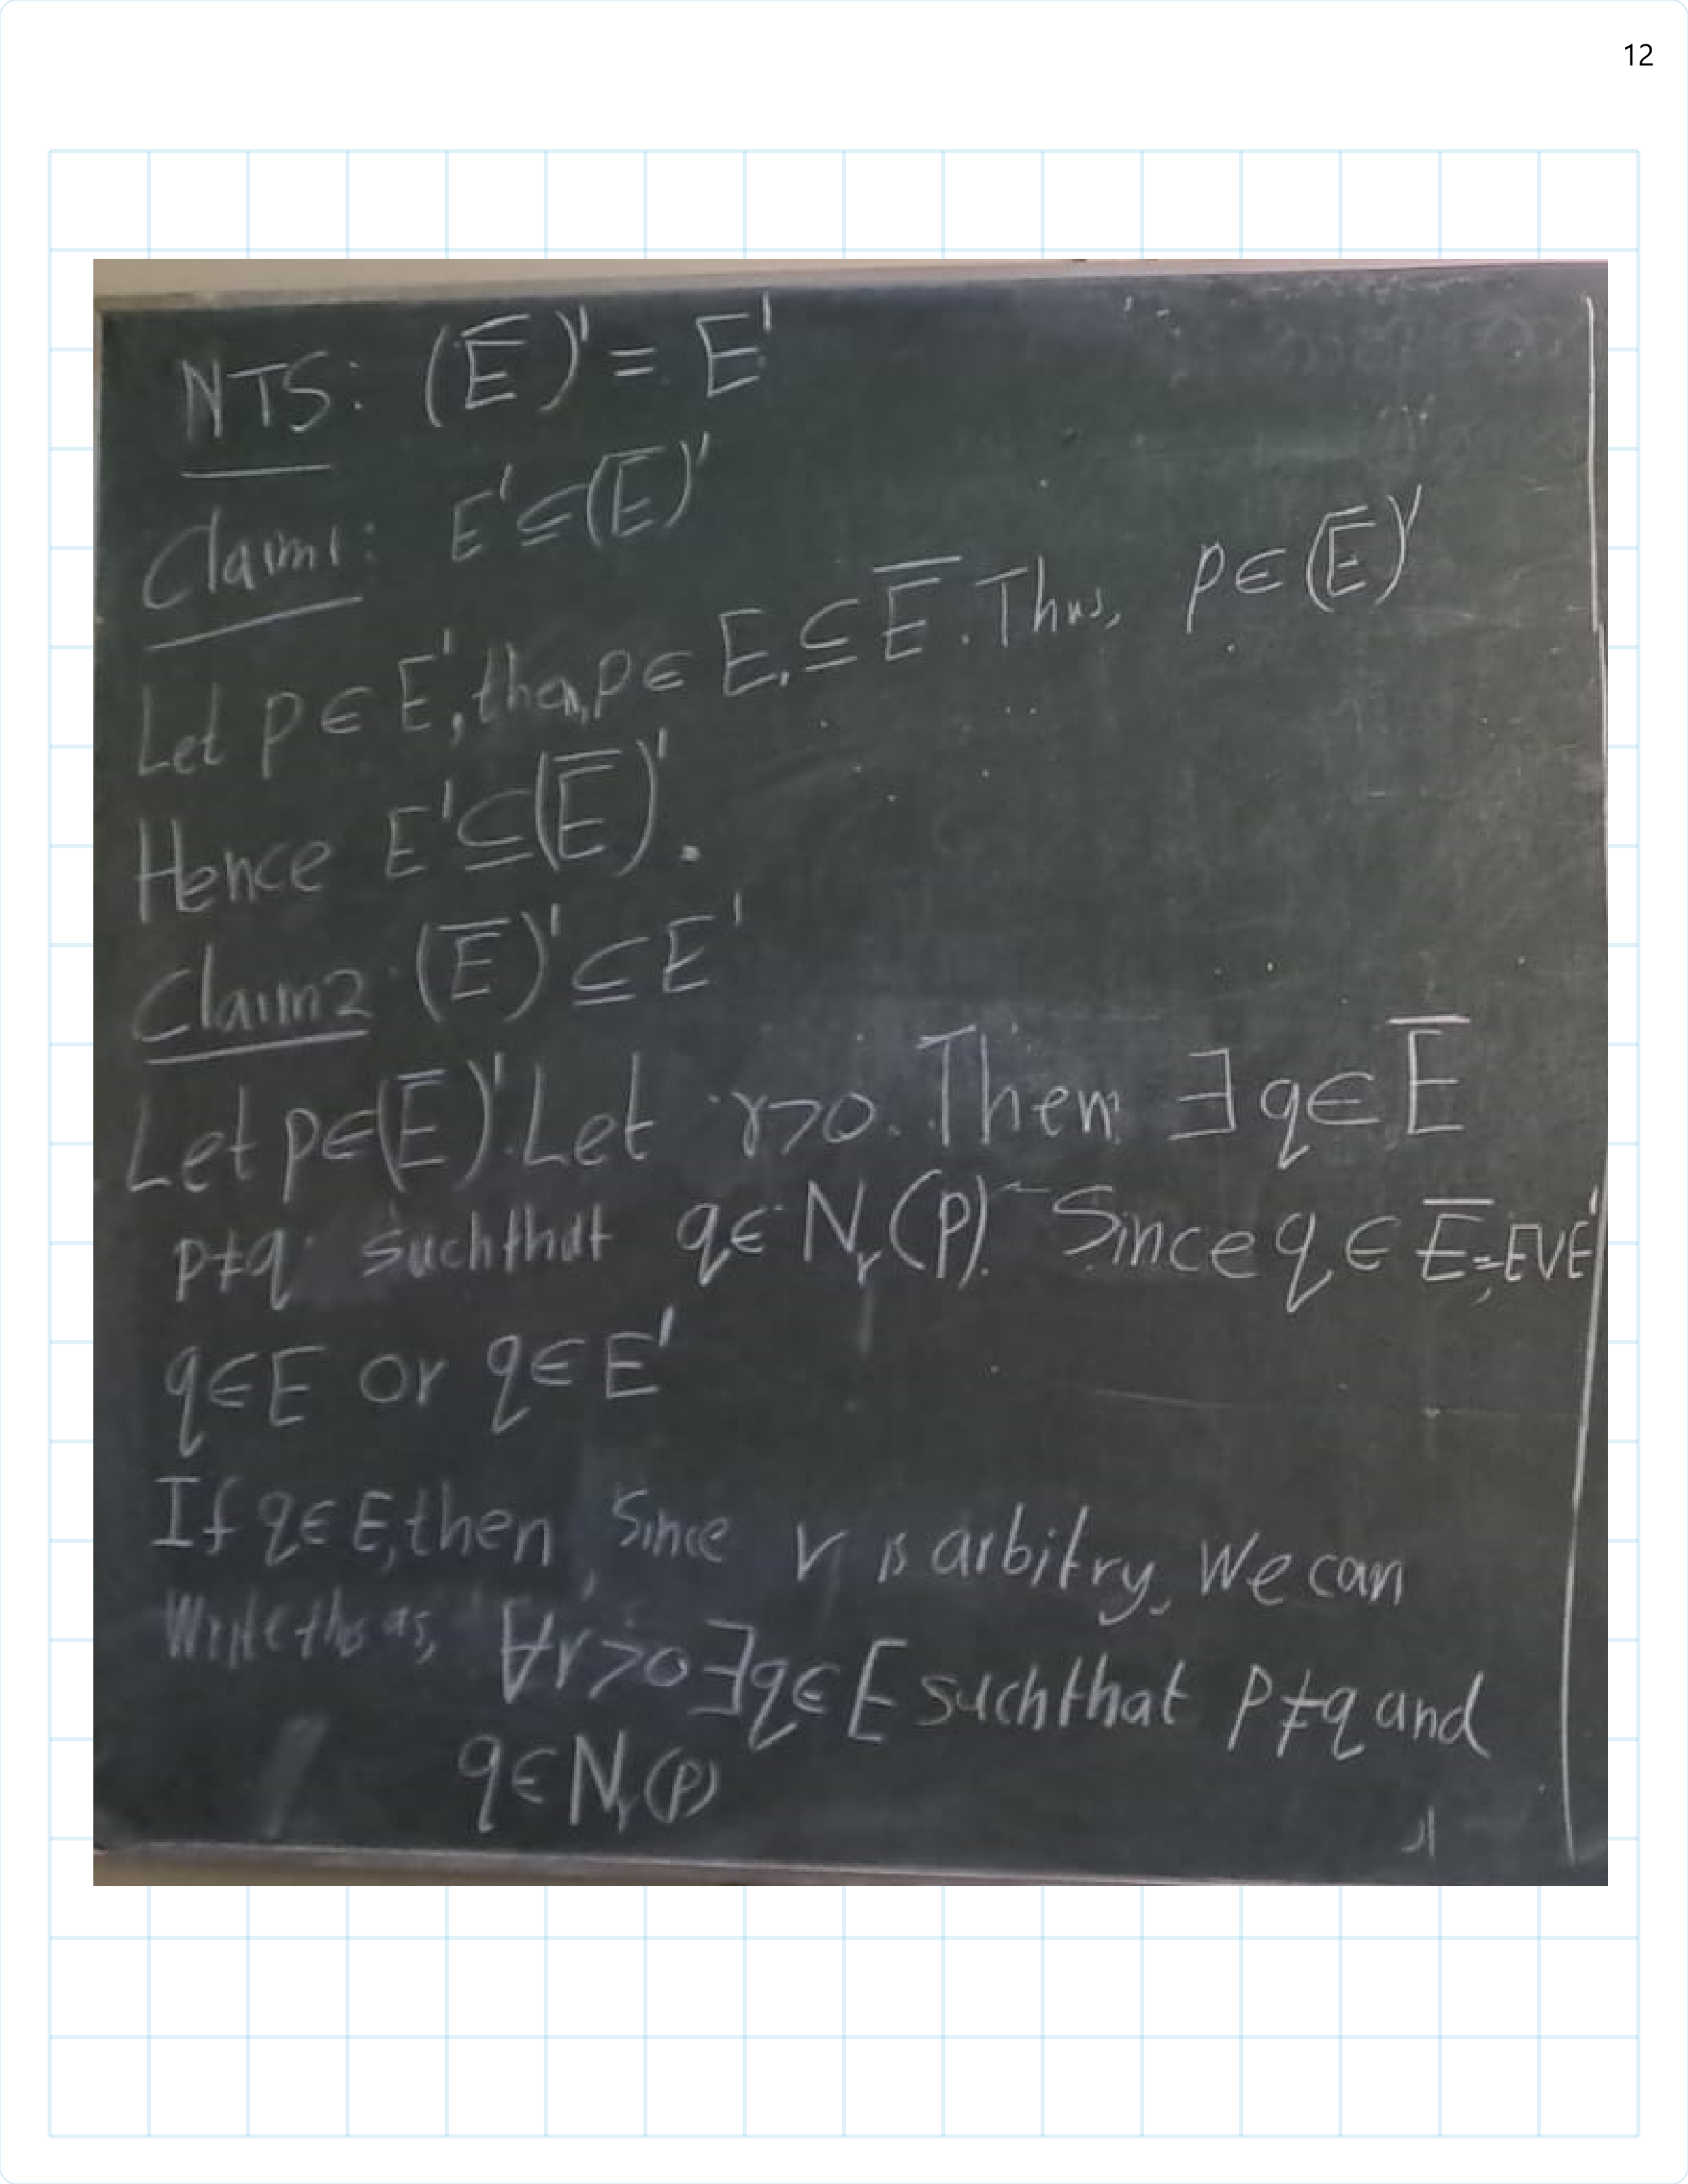 12
NTS: (E̅)' = E'
Claim1: E' ⊆ (E̅)'
Let p ∈ E', then, p ∈ E, ⊆ E̅. Thus, p ∈ (E̅)'
Hence E' ⊆ (E̅)'.
Claim2 (E̅)' ⊆ E'
Let p ∈ (E̅)'. Let r>0. Then ∃ q ∈ E̅
p≠q such that q ∈ Nᵣ(p). Since q ∈ E̅ = E∪E',
q ∈ E or q ∈ E'
If q ∈ E, then, Since r is arbitry, We can
Write this as, ∀r>0 ∃q ∈ E such that p≠q and
q ∈ Nᵣ(p)